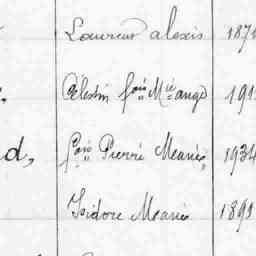 Laurent alexis 187
Célestin fçois Mie ange 191
d, fçois Pierre Meanis 1934
Isidore Meanis 1891